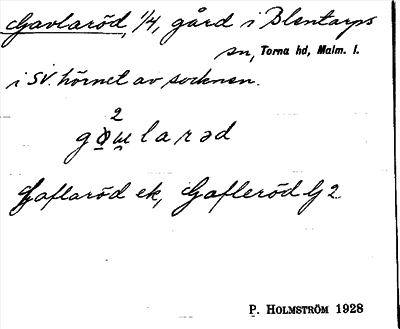 Gavlaröd, 1/4, gård i Blentarps
sn, Torna hd, Malm. l.
i SV. hörnet av socknen.
2
gɷu̯larəd
Gaflaröd ek, Gafleröd G 2
P. HOLMSTRÖM 1928